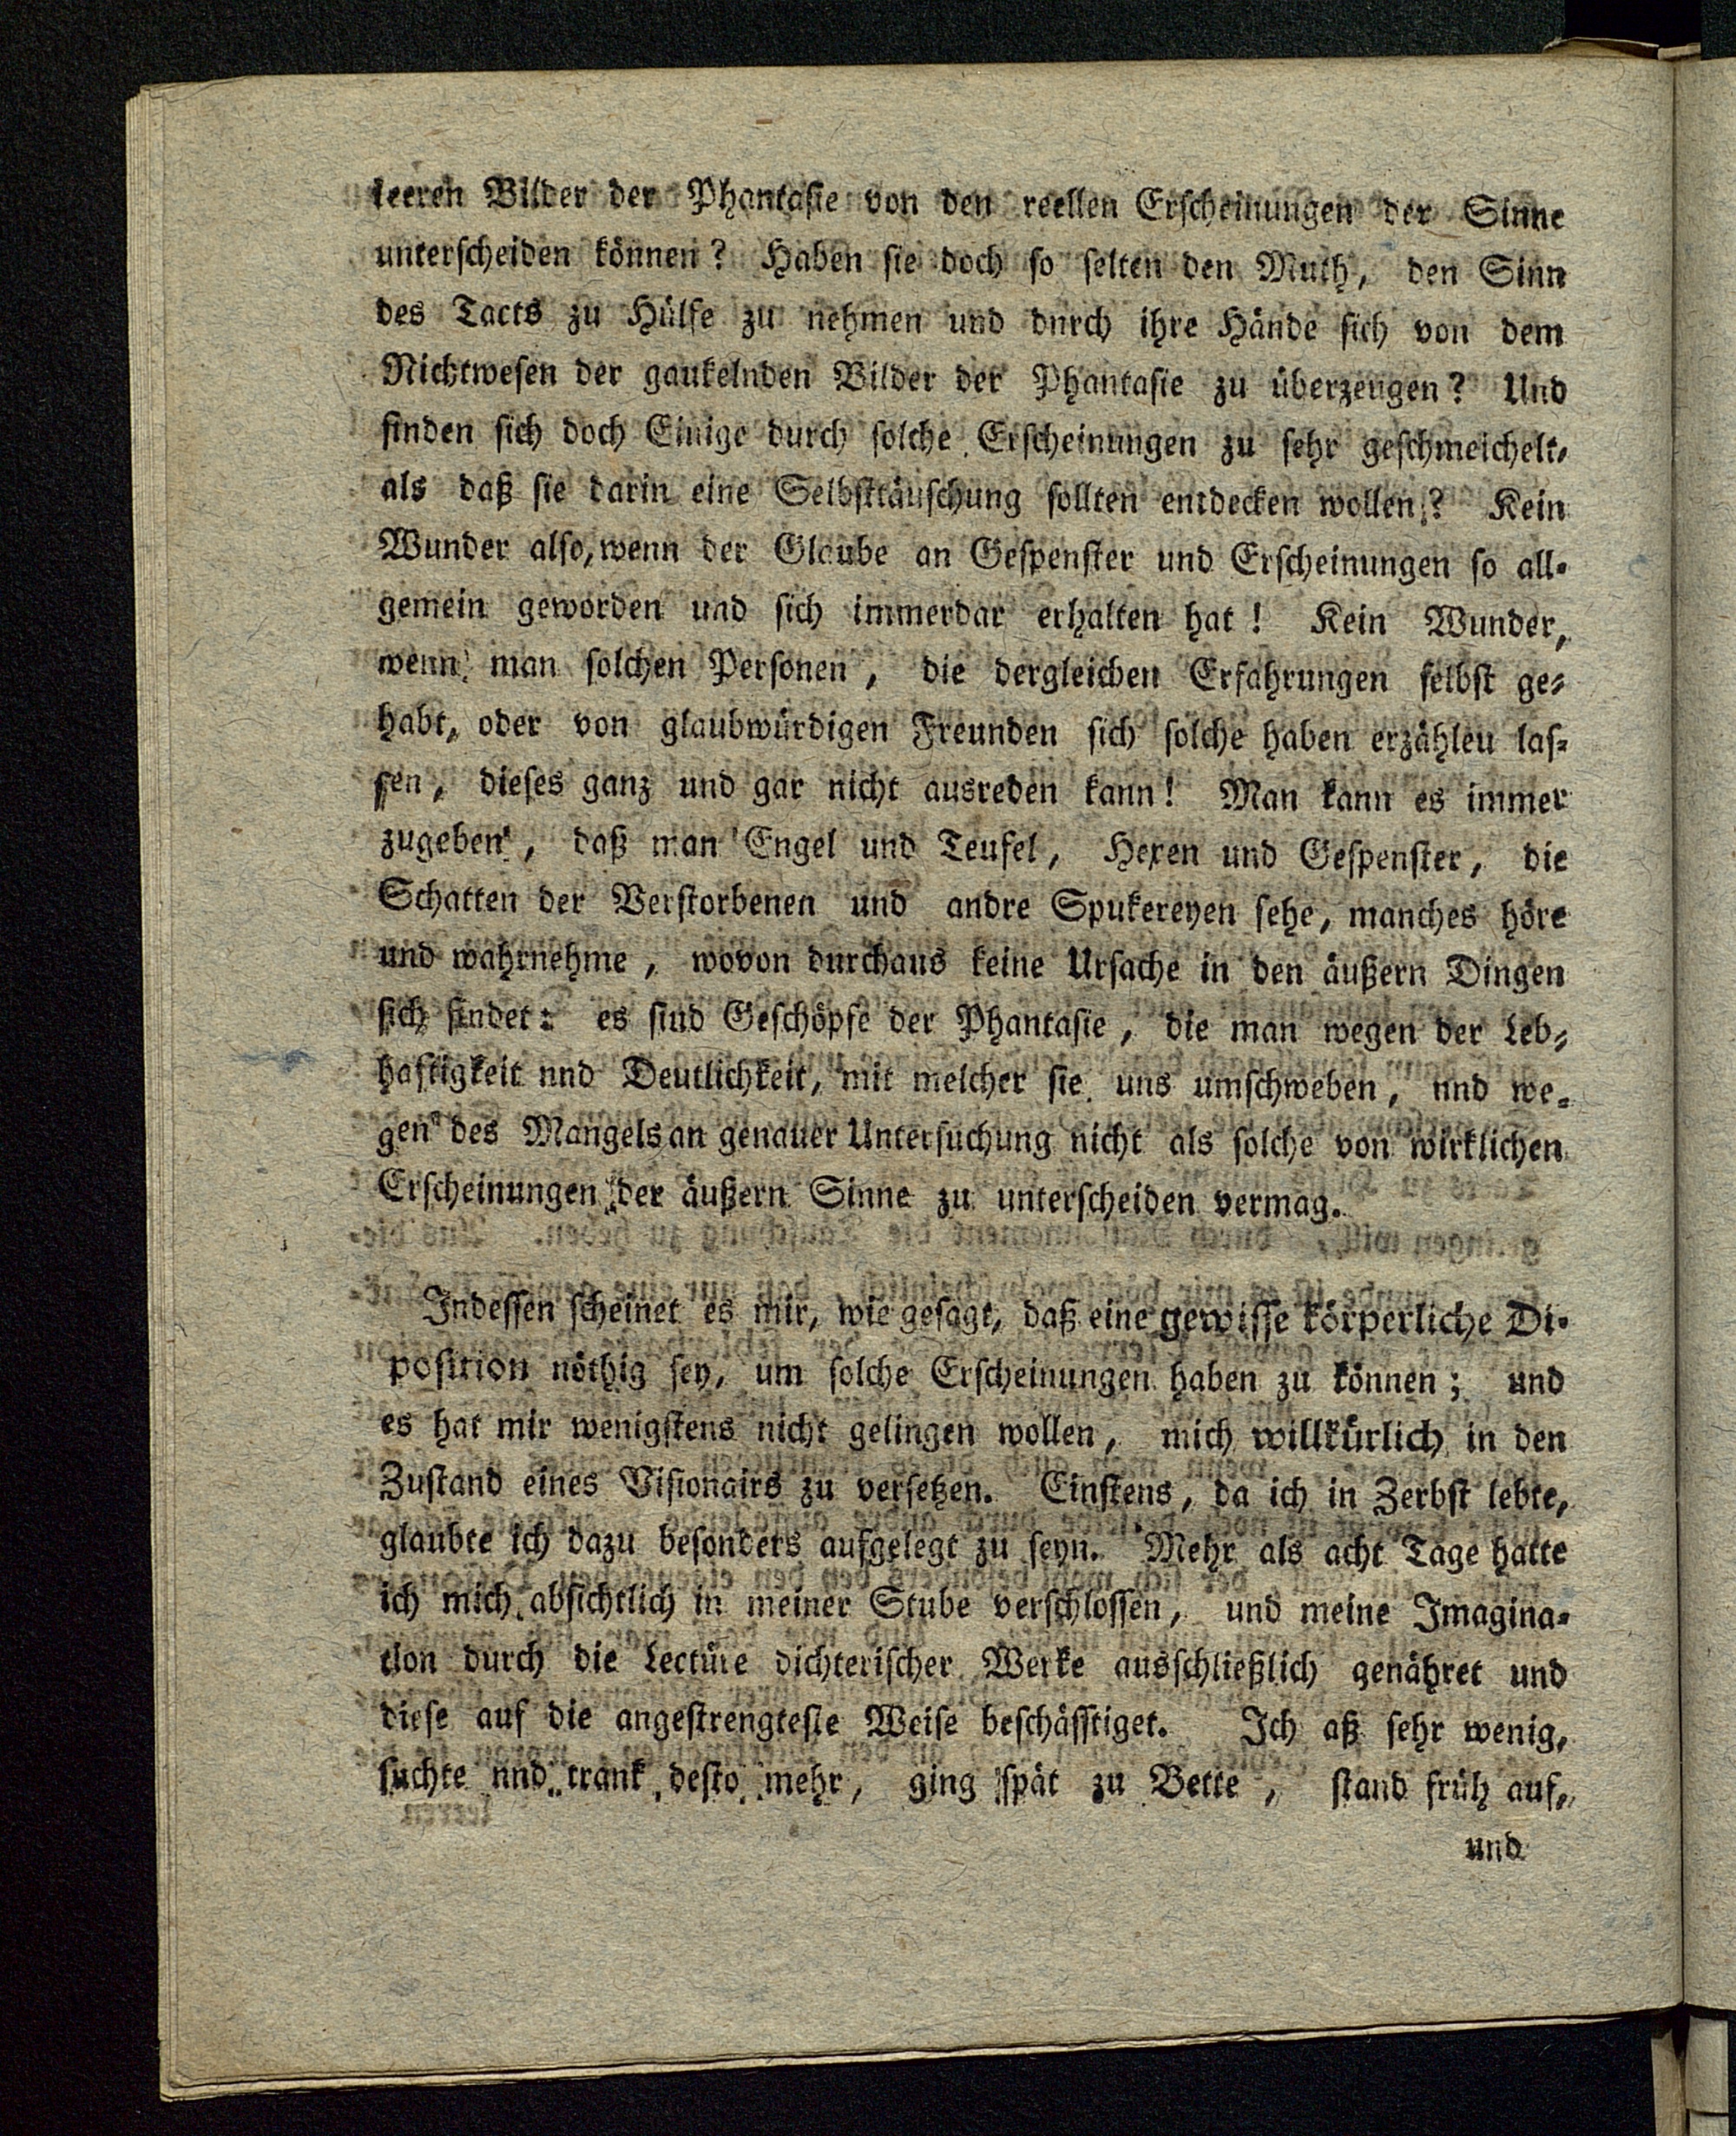 leeren Bilder der Phantasie von den reellen Erscheinungen der Sinne
unterscheiden können? Haben sie doch so selten den Muth, den Sinn
des Tacts zu Hülfe zu nehmen und durch ihre Hände sich von dem
Nichtwesen der gaukelnden Bilder der Phantasie zu überzeugen? Und
finden sich doch Einige durch solche Erscheinungen zu sehr geschmeichelt,
als daß sie darin eine Selbsttäuschung sollten entdecken wollen? Kein
Wunder also, wenn der Glaube an Gespenster und Erscheinungen so all-
gemein geworden und sich immerdar erhalten hat! Kein Wunder,
wenn man solchen Personen, die dergleichen Erfahrungen selbst ge-
habt, oder von glaubwürdigen Freunden sich solche haben erzählen las-
sen, dieses ganz und gar nicht ausreden kann! Man kann es immer
zugeben, daß man Engel und Teufel, Hexen und Gespenster, die
Schatten der Verstorbenen und andre Spukereyen sehe, manches höre
und wahrnehme, wovon durchaus keine Ursache in den äußern Dingen
sich findet: es sind Geschöpfe der Phantasie, die man wegen der Leb-
haftigkeit nnd Deutlichkeit, mit melcher sie uns umschweben, nnd we-
gen des Mangels an genauer Untersuchung nicht als solche von wirklichen
Erscheinungen der äußern Sinne zu unterscheiden vermag.
Indessen scheinet es mir, wie gesagt, daß eine gewisse körperliche Di-
position nöthig sey, um solche Erscheinungen haben zu können; und
es hat mir wenigstens nicht gelingen wollen, mich willkürlich in den
Zustand eines Visionairs zu versetzen. Einstens, da ich in Zerbst lebte,
glaubte ich dazu besonders aufgelegt zu seyn. Mehr als acht Tage hatte
ich mich absichtlich in meiner Stube verschlossen, und meine Imagina-
tion durch die Lectüre dichterischer Werke ausschließlich genähret und
diese auf die angestrengteste Weise beschäfftiget. Ich aß sehr wenig,
suchte nnd trank desto mehr, ging spät zu Bette, stand früh auf,
und